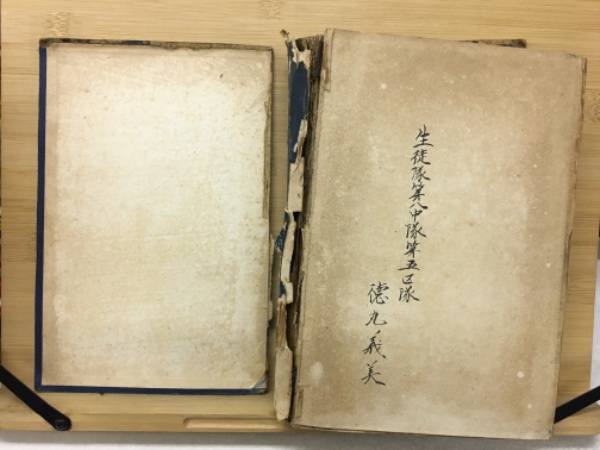 生徒隊第八中隊第五区隊
徳丸義美